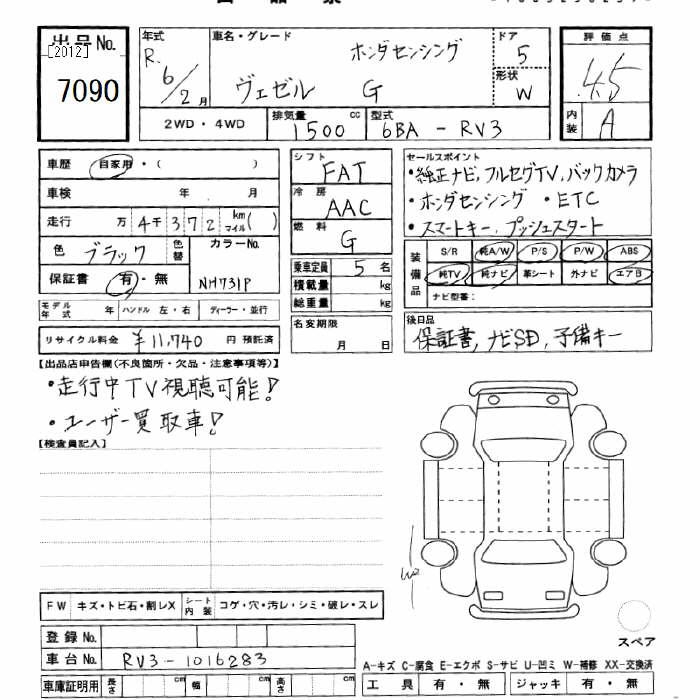 出品No.
[2012]
7090
年式
R.
6/2 月
車名・グレード
ホンダセンシング
ヴェゼル G
ドア
5
形状
W
評価点
4.5
内装
A
2WD・4WD
排気量
1500 cc
型式
6BA - RV3
車歴
自家用・( )
車検 年 月
走行 万 4千 3 7 2 km マイル( )
色 ブラック 色替
カラーNo.
NH731P
保証書 有・無
モデル年式 年 ハンドル 左・右 ディーラー・並行
リサイクル料金 ¥11,740 円 預託済
シフト
FAT
冷房
AAC
燃料
G
乗車定員 5 名
積載量 kg
総重量 kg
名変期限
月 日
セールスポイント
・純正ナビ,フルセグTV,バックカメラ
・ホンダセンシング ・ETC
・スマートキー,プッシュスタート
装備品
S/R 純A/W P/S P/W ABS
純TV 純ナビ 革シート 外ナビ エアB
ナビ型番:
後日品
保証書,ナビSD,予備キー
【出品店申告欄(不良箇所・欠品・注意事項等)】
・走行中TV視聴可能!
・ユーザー買取車!
【検査員記入】
W2
FW キズ・トビ石・割レX シート内装 コゲ・穴・汚レ・シミ・破レ・スレ
登録No.
車台No. RV3-1016283
車庫証明用 長さ cm 幅 cm 高さ cm
スペア
A-キズ C-腐食 E-エクボ S-サビ U-凹ミ W-補修 XX-交換済
工具 有・無 ジャッキ 有・無